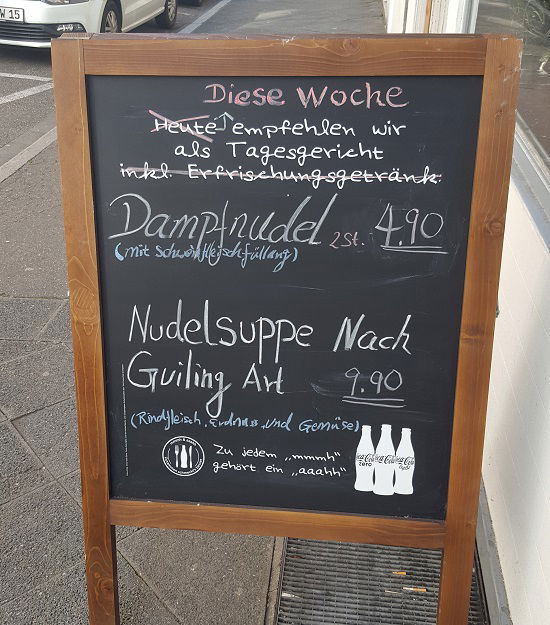 W 15
Diese Woche
Heute empfehlen wir
als Tagesgericht
inkl. Erfrischungsgetränk.
Dampfnudel 2 St. 4.90
(mit Schweinfleischfüllung)
Nudelsuppe Nach
Guiling Art 9.90
(Rindfleisch, Erdnuss, und Gemüse)
Zu jedem „mmmh"
gehört ein „aaahh"
Coca-Cola zero
Coca-Cola
Coca-Cola light